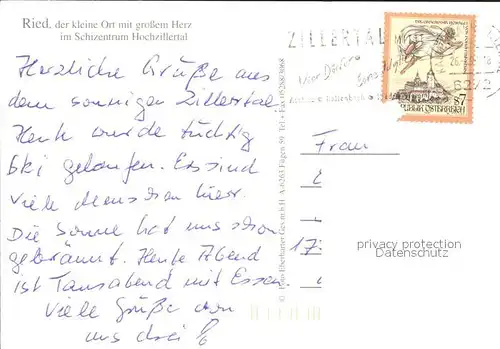 Ried, der kleine Ort mit großem Herz
im Schizentrum Hochzillertal
Herzliche Grüße aus
dem sonnigen Zillertal
Heute wurde tüchtig
Ski gelaufen. Es sind
viele Menschen hier.
Die Sonne hat uns schon
gebräunt. Heute Abend
ist Tanzabend mit Essen.
Viele Grüße von
uns drei
ZILLERTAL
6272
REPUBLIK ÖSTERREICH
S7
Frau
17
privacy protection
Datenschutz